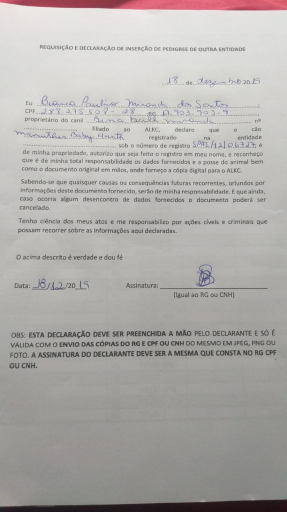 REQUISIÇÃO E DECLARAÇÃO DE INSERÇÃO DE PEDIGREE DE OUTRA ENTIDADE
18 de dezembro 2019
Eu Bianca Paulino Miranda dos Santos
CPF
proprietário do canil Miranda nº
filiado ao ALKC, declaro que o cão
Baby registrado na entidade
sob o número de registro é
de minha propriedade, autorizo que seja feito o registro em meu nome, e reconheço
que é de minha total responsabilidade os dados fornecidos e a posse do animal bem
como o documento original em mãos, onde forneço a cópia digital para o ALKC.
Sabendo-se que quaisquer causas ou consequências futuras recorrentes, oriundos por
informações deste documento fornecido, serão de minha responsabilidade. E que ainda,
caso ocorra algum desencontro de dados fornecidos o documento poderá ser
cancelado.
Tenho ciência dos meus atos e me responsabilizo por ações cíveis e criminais que
possam recorrer sobre as informações aqui declaradas.
O acima descrito é verdade e dou fé
Data: 18/12/2019 Assinatura:
(Igual ao RG ou CNH)
OBS: ESTA DECLARAÇÃO DEVE SER PREENCHIDA A MÃO PELO DECLARANTE E SÓ É
VÁLIDA COM O ENVIO DAS CÓPIAS DO RG E CPF OU CNH DO MESMO EM JPEG, PNG OU
FOTO. A ASSINATURA DO DECLARANTE DEVE SER A MESMA QUE CONSTA NO RG CPF
OU CNH.